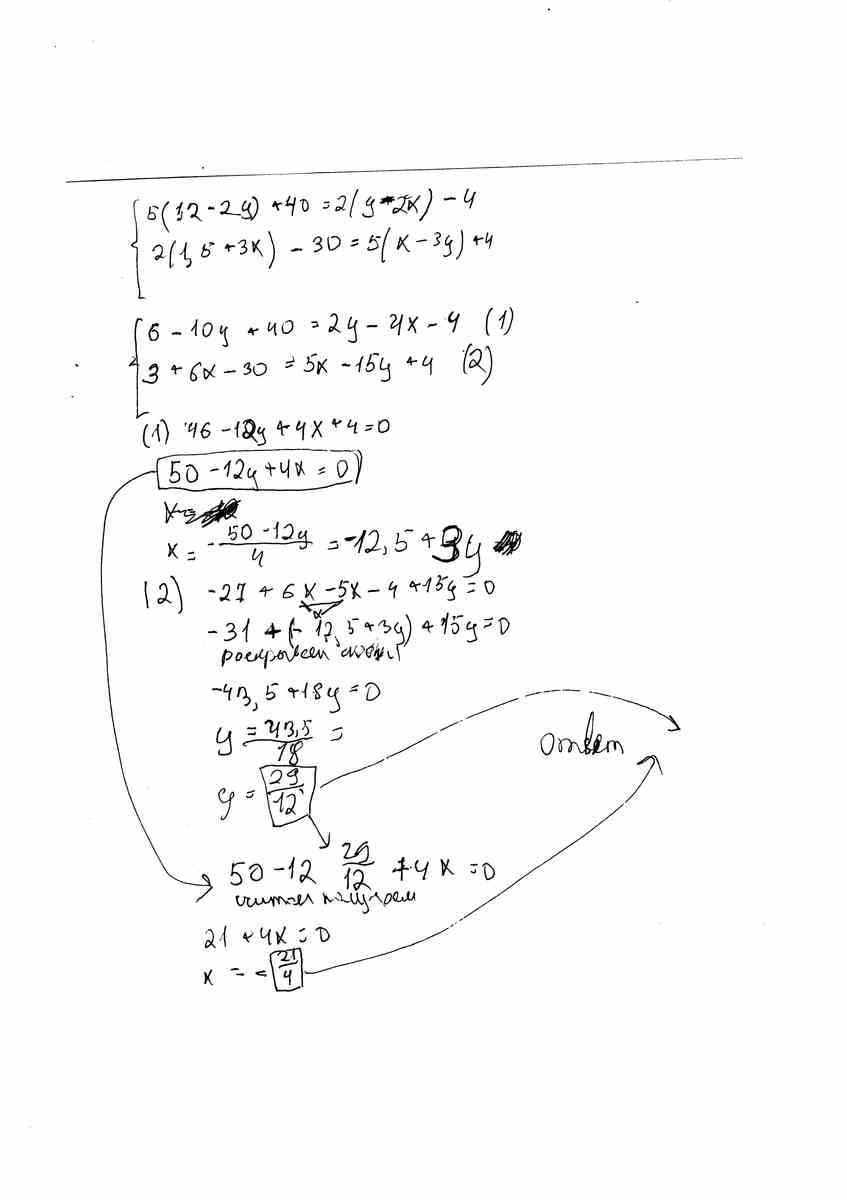 5(1,2-2y)+40=2(y-2x)-4
2(1,5+3x)-30=5(x-3y)+4
6-10y+40=2y-4x-4 (1)
3+6x-30=5x-15y+4 (2)
(1) 46-12y+4x+4=0
50-12y+4x=0
x=-\frac{50-12y}{4}=-12,5+3y
(2) -27+6x-5x-4+15y=0
x
-31+(-12,5+3y)+15y=0
раскрываем скобки
-43,5+18y=0
y=\frac{43,5}{18}=
y=\frac{29}{12}
ответ
50-12 \frac{29}{12}+4x=0
считаем получаем
21+4x=0
x=-\frac{21}{4}